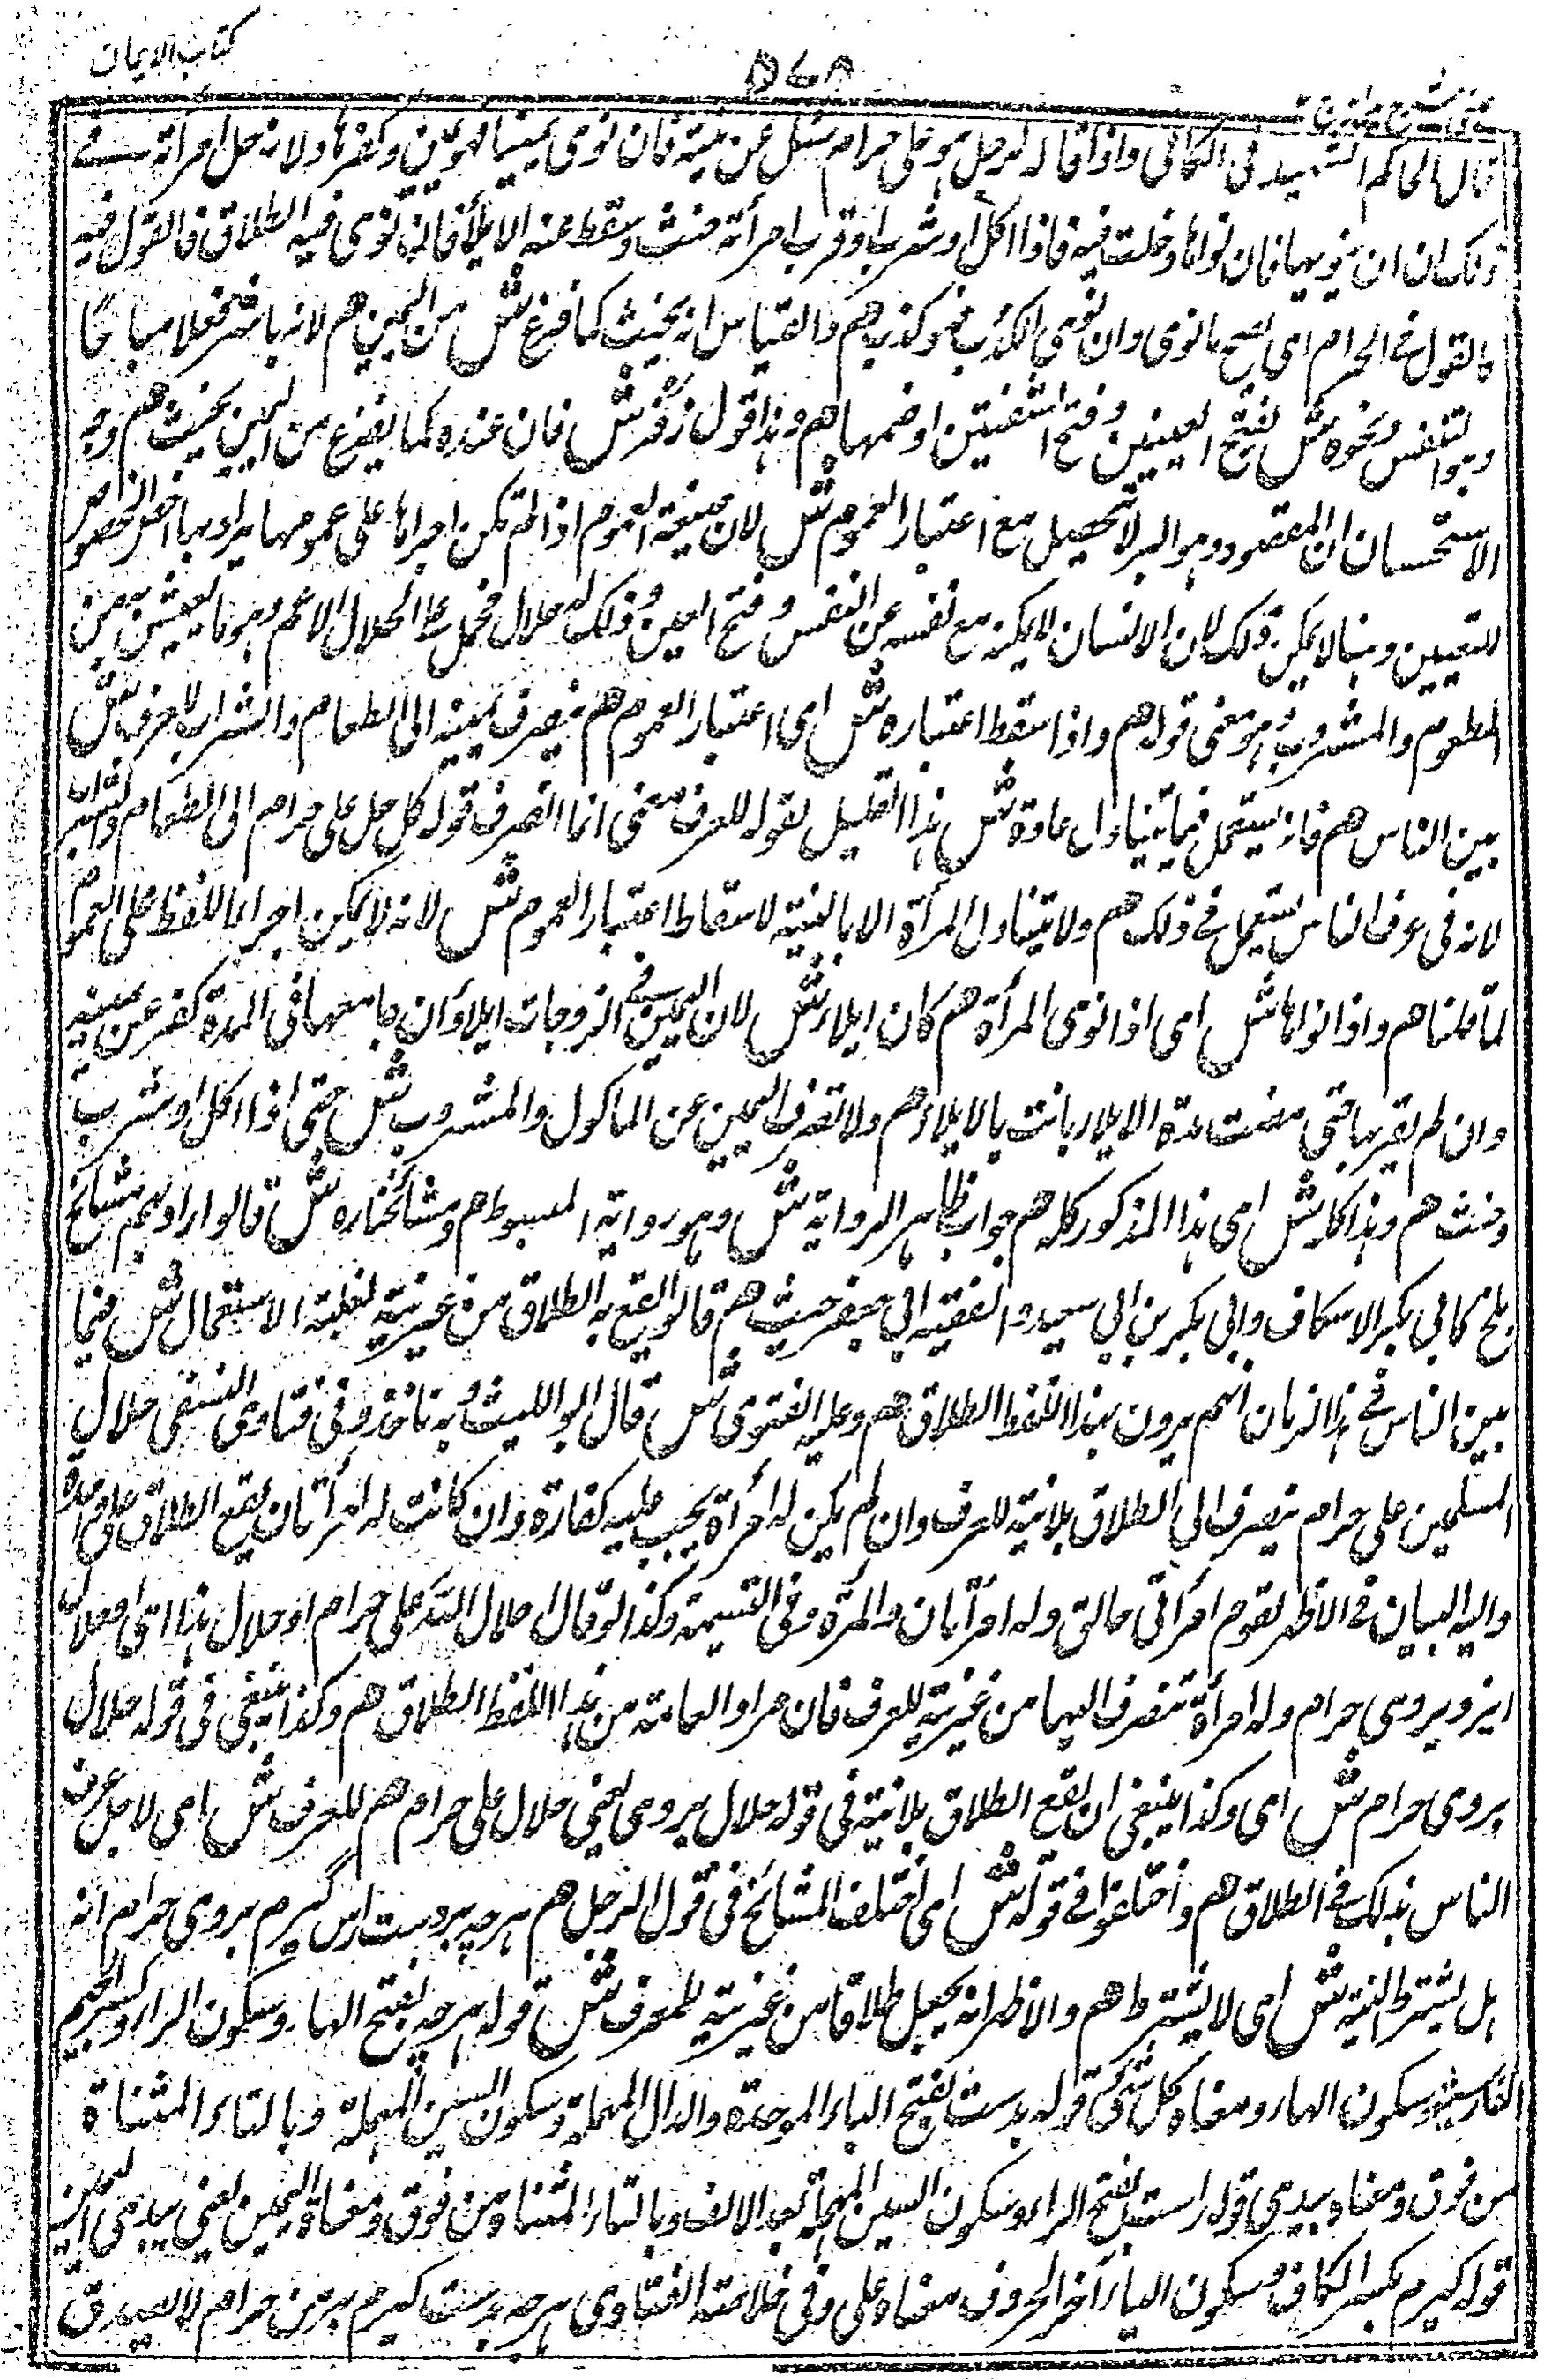 كتاب الايمان
٥٦٨
عينى شرح هداية ج ٢
قال الحاكم الشهيد فى الكافى واذا قال لرجل هو على حرام سئل عن نيته فان نوى يمينا فهو يمين وكفرها ولا تدخل امرأته فى
ذلك ان ان ينويها فان نواها دخلت فيه فاذا اكل او شرب او قرب امرأته حنث وسقط عنه الايلاء فانه نوى فيه الطلاق فالقول فيه
كالقول فى الحرام اى يصح ما نوى وان نوى الكذب فهو كذب هم والقياس ان يحنث كما فرغ ش من اليمين هم لانه باشر فعلا مباحا
وهو التنفس ونحوه ش كفتح العينين وفتح الشفتين او ضمها هم وهذا قول زفر ش فان عنده كما يفرغ من اليمين يحنث هم وجه
الاستحسان ان المقصود وهو البر لا تحصيل مع اعتبار العموم ش لان صيغة العموم اذا لم تكن اجراها على عمومها يراد بها اخص الخصوص
للتعيين وهنا لا يمكن ذلك لان الانسان لا يمكنه منع نفسه عن النفس وفتح العين وذلك له حلال فحمل على الحلال الاعم وهو ما يعيش به من
المطعوم والمشروب وهو معنى قوله هم واذا سقط اعتباره ش اى اعتبار العموم هم ينصرف يمينه الى الطعام والشراب للعرف ش
بين الناس هم فانه يستعمل فيما يتناول عادة ش هذا التعليل لقوله للعرف معنى انما انصرف قوله كل حل على حرام الى الطعام والشراب
لانه فى عرف الناس يستعمل فى ذلك هم ولا يتناول المرأة الا بالنية لاسقاط اعتبار العموم ش لانه لا يمكن اجراء اللفظ على العموم
لما قلنا هم واذا نواها ش اى اذا نوى المرأة هم كان ايلاء ش لان اليمين فى الزوجات ايلاء وان جامعها فى المدة كفر عن يمينه
وان لم يقربها حتى مضت مدة الايلاء بانت بالايلاء هم ولا تصرف اليمين عن الماكول والمشروب ش حتى اذا اكل او شرب
وحنث هم وهذا كله ش اى هذا المذكور كله هم جواب ظاهر الرواية ش وهو رواية المبسوط هم ومشائخنا ره ش قالوا اراد بهم مشائخ
بلخ كابى بكر الاسكاف وابى بكر بن ابى سعيد والفقيه ابى جعفر حيث هم قالوا يقع به الطلاق من غير نية لغلبة الاستعمال ش فيما
بين الناس فى هذا الزمان انهم يريدون بهذا اللفظ الطلاق هم وعليه الفتوى ش قال ابو الليث وبه ناخذ وفى فتاوى النسفى حلال
المسلمين على حرام ينصرف الى الطلاق بلا نية للعرف وان لم يكن له امرأة يجب عليه كفارة وان كانت له امرأتان يقع الطلاق على واحدة
واليه البيان فى الاظهر لقوم امرأتى طالق وله امرأتان والمرة وفى التتمة وكذا لو قال حلال الله على حرام او حلال هذا اى او حلال
ايزد بروى حرام وله امرأة تنصرف اليها من غير نية للعرف فان مراد العامة من هذا اللفظ الطلاق هم وكذا ينبغى فى قوله حلال
بروى حرام ش اى وكذا ينبغى ان يقع الطلاق بلا نية فى قوله حلال بروى يعنى حلال على حرام هم للعرف ش اى لاجل عرف
الناس بذلك فى الطلاق هم واختلفوا فى قوله ش اى اختلف المشائخ فى قول الرجل هم هرچه بردست راس گيرم بروى حرام انه
هل يشترط النية ش اى لا يشترط هم والاظهر انه يجعل طلاقا من غير نية للعرف ش قوله هرچه بفتح الهاء وسكون الراء وكسر الجيم
الفارسية وسكون الهاء ومعناه كل شئ قوله بدست بفتح الباء الموحدة والدال المهملة وسكون السين المهملة وبالتاء المثناة
من فوق ومعناه بيدى قوله راست بفتح الراء وسكون السين المهملة بعد الالف وبالتاء المثناة من فوق ومعناه اليمين يعنى بيدى اليمين
قوله گيرم بكسر الكاف وسكون الياء آخر الحروف معناه على وفى خلاصة الفتاوى هرچه بدست گيرم بر من حرام لا يصدق